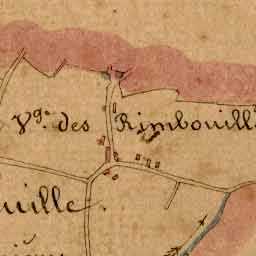 V.ge des Rimbouill
uille.